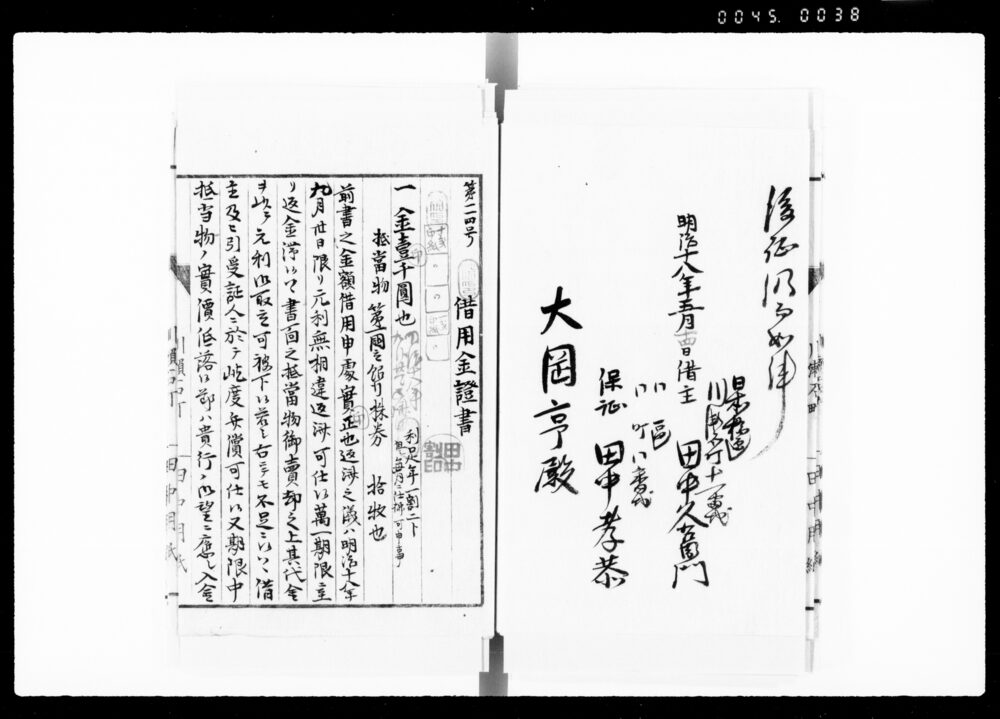 0045. 0038
後証仍而如件
明治十八年五月 日借主
日本橋区
川瀬石町十一番地
田中久右衛門
〃 区
〃 町〃番地
保証 田中孝恭
大岡亨殿
第二四号
借用金證書
一 金壹千圓也
利足年一割二卜
但毎月ニ仕拂可申事
抵當物 第一國立銀行株券 拾枚也
前書之金額借用申處實正也返済之儀ハ明治十八年
九月卅日限リ元利無相違返済可仕候萬一期限至
リ返金滞候ハヽ書面之抵當物御賣却之上其代金
ヲ以テ元利御取立可被下候若シ右ニテモ不足ニ候ハヽ借
主及ヒ引受証人ニ於テ屹度弁償可仕候又期限中
抵当物ノ實價低落候節ハ貴行ノ御望ニ應シ入金
田中
割印